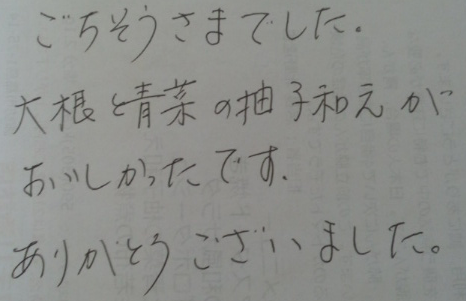 ごちそうさまでした。
大根と青菜の柚子和えが
おいしかったです.
ありがとうございました。